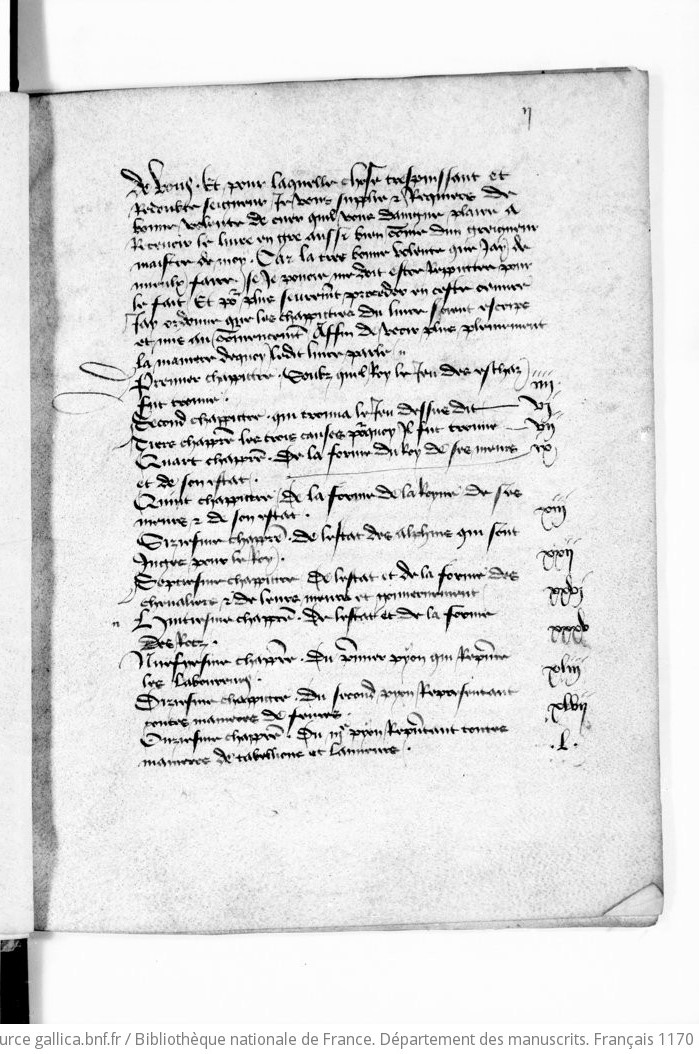 ij
de vous. Et pour laquelle chose trespuissant et
Redoubte seigneur Je vous supplie et Requiers de
bonne voulente de cuer quil vous daingne plaire a
Recevoir le livre en gre aussi bien come dun greigneur
maistre de moy. Car la tres bonne volente que Jay de
mieulx faire se Je povoie me doit estre Reputtee pour
le fait Et por plus seuremt proceder en ceste euvre
Jay ordonne que les chappitres du livre soient escrips
et mis au comencemt Affin de veoir plus plainement
la maniere dequoy ledit livre parle
Premier chappitre. Soubz quel Roy le Jeu des eschaz iiii
fut trouve.
Second chappitre. qui trouva le Jeu dessus dit vi
Tiers chappre les trois causes porquoy Il fut trouve vii
Quart chappre. De la forme du Roy de ses meurs ix
et de son estat.
Quint chappitre De la forme de la Royne de ses
meurs et de son estat. xiii
Sixiesme chappre. de lestat des alphins qui sont
Juges pour le Roy. xxii
Septiesme chappitre De lestat et de la forme des
chevaliers et de leurs meurs et gouvernement xxvi
Huitiesme chappre. De lestat et de la forme
des Rocz. xxxv
Neufviesme chappre. Du premier pyon qui Repnte
les laboureurs. xliii
Dixiesme chappitre. Du second pyon Representant
toutes manieres de fevres. xlvii
Onziesme chappre. Du iije pyon Repntant toutes
manieres de tabellions et lanieurs. .L.
urce gallica.bnf.fr / Bibliothèque nationale de France. Département des manuscrits. Français 1170